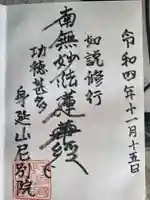 令和四年十一月十五日
如説修行
南無妙法蓮華経
功徳甚多
身延山尼別院